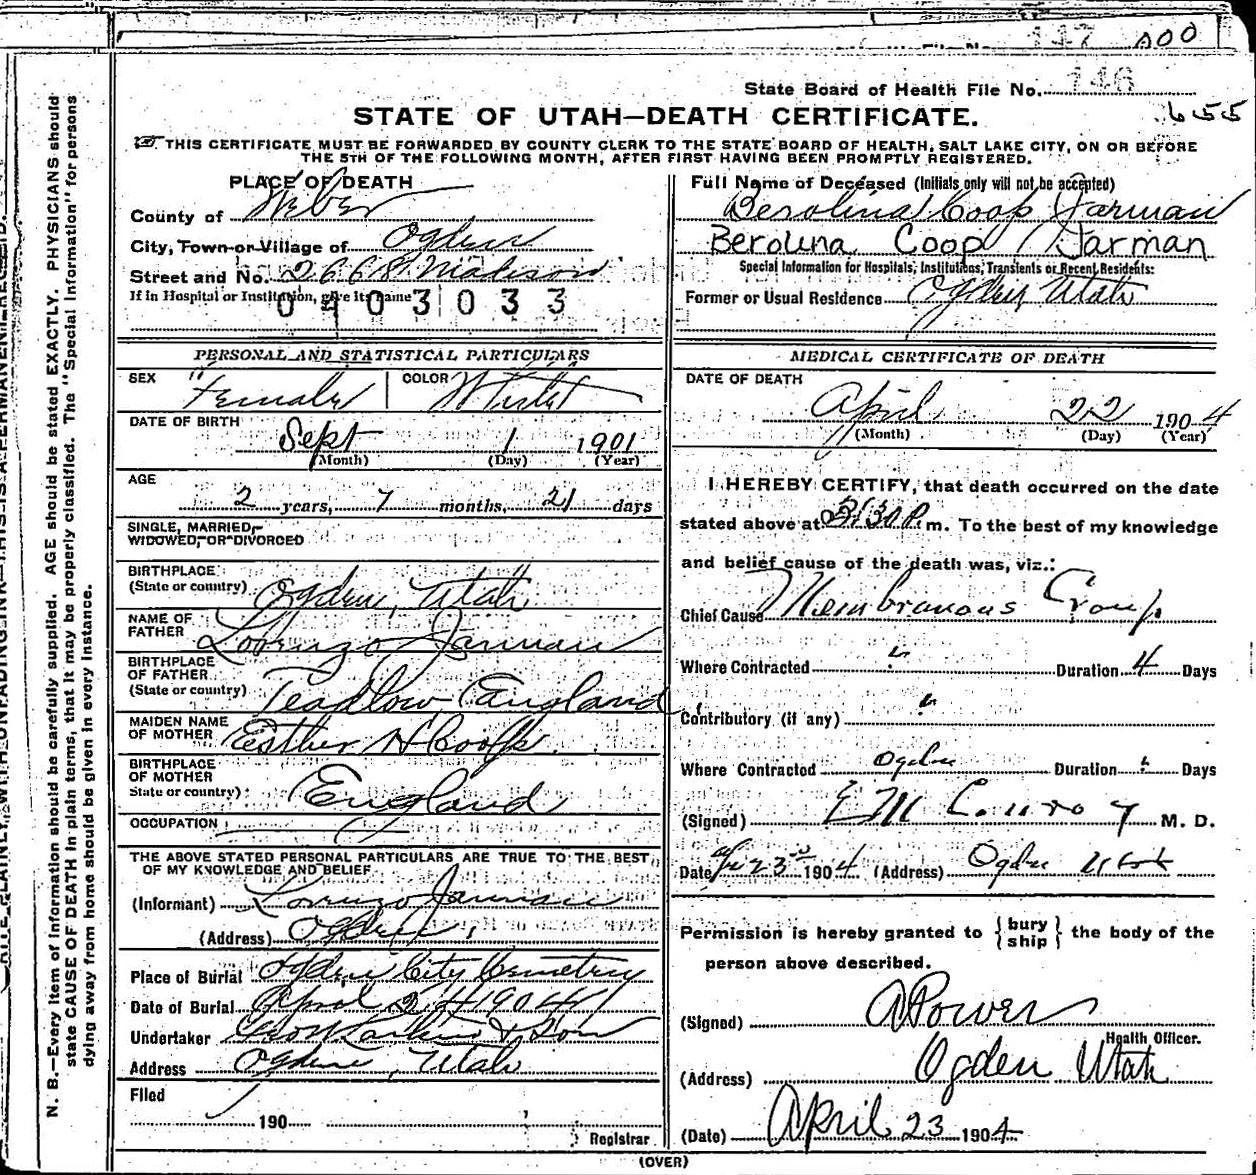 147 000
State Board of Health File No. 146
655
STATE OF UTAH—DEATH CERTIFICATE.
THIS CERTIFICATE MUST BE FORWARDED BY COUNTY CLERK TO THE STATE BOARD OF HEALTH, SALT LAKE CITY, ON OR BEFORE
THE 5TH OF THE FOLLOWING MONTH, AFTER FIRST HAVING BEEN PROMPTLY REGISTERED.
PLACE OF DEATH
County of Weber
City, Town or Village of Ogden
Street and No. 2668 Madison
If in Hospital or Institution, give its name
0403033
Full Name of Deceased (Initials only will not be accepted)
Berolina Coop Jarman
Berolina Coop Jarman
Special Information for Hospitals, Institutions, Transients or Recent Residents:
Former or Usual Residence Ogden Utah
PERSONAL AND STATISTICAL PARTICULARS
SEX Female COLOR White
DATE OF BIRTH
Sept 1 1901
(Month) (Day) (Year)
AGE
2 years, 7 months, 21 days
SINGLE, MARRIED,
WIDOWED, OR DIVORCED
BIRTHPLACE
(State or country) Ogden, Utah
NAME OF
FATHER Lorenzo Jarman
BIRTHPLACE
OF FATHER
(State or country) England
MAIDEN NAME
OF MOTHER Esther H
BIRTHPLACE
OF MOTHER
State or country) England
OCCUPATION
THE ABOVE STATED PERSONAL PARTICULARS ARE TRUE TO THE BEST
OF MY KNOWLEDGE AND BELIEF
(Informant) Lorenzo Jarman
(Address) Ogden
Place of Burial Ogden City Cemetery
Date of Burial April 24 1904
Undertaker Larkin & Son
Address Ogden, Utah
Filed
190
Registrar
MEDICAL CERTIFICATE OF DEATH
DATE OF DEATH
April 22 1904
(Month) (Day) (Year)
I HEREBY CERTIFY, that death occurred on the date
stated above at 3:30 P. m. To the best of my knowledge
and belief cause of the death was, viz.:
Chief Cause Membranous Croup.
Where Contracted " Duration 4 Days
Contributory (if any) "
Where Contracted Ogden Duration " Days
(Signed) E M Conroy M. D.
Date Apr 23rd 1904 (Address) Ogden Utah
Permission is hereby granted to {bury
ship} the body of the
person above described.
(Signed) A Power
Health Officer.
(Address) Ogden Utah
(Date) April 23 1904
(OVER)
N. B.—Every item of information should be carefully supplied. AGE should be stated EXACTLY. PHYSICIANS should
state CAUSE OF DEATH in plain terms, that it may be properly classified. The "Special Information" for persons
dying away from home should be given in every instance.